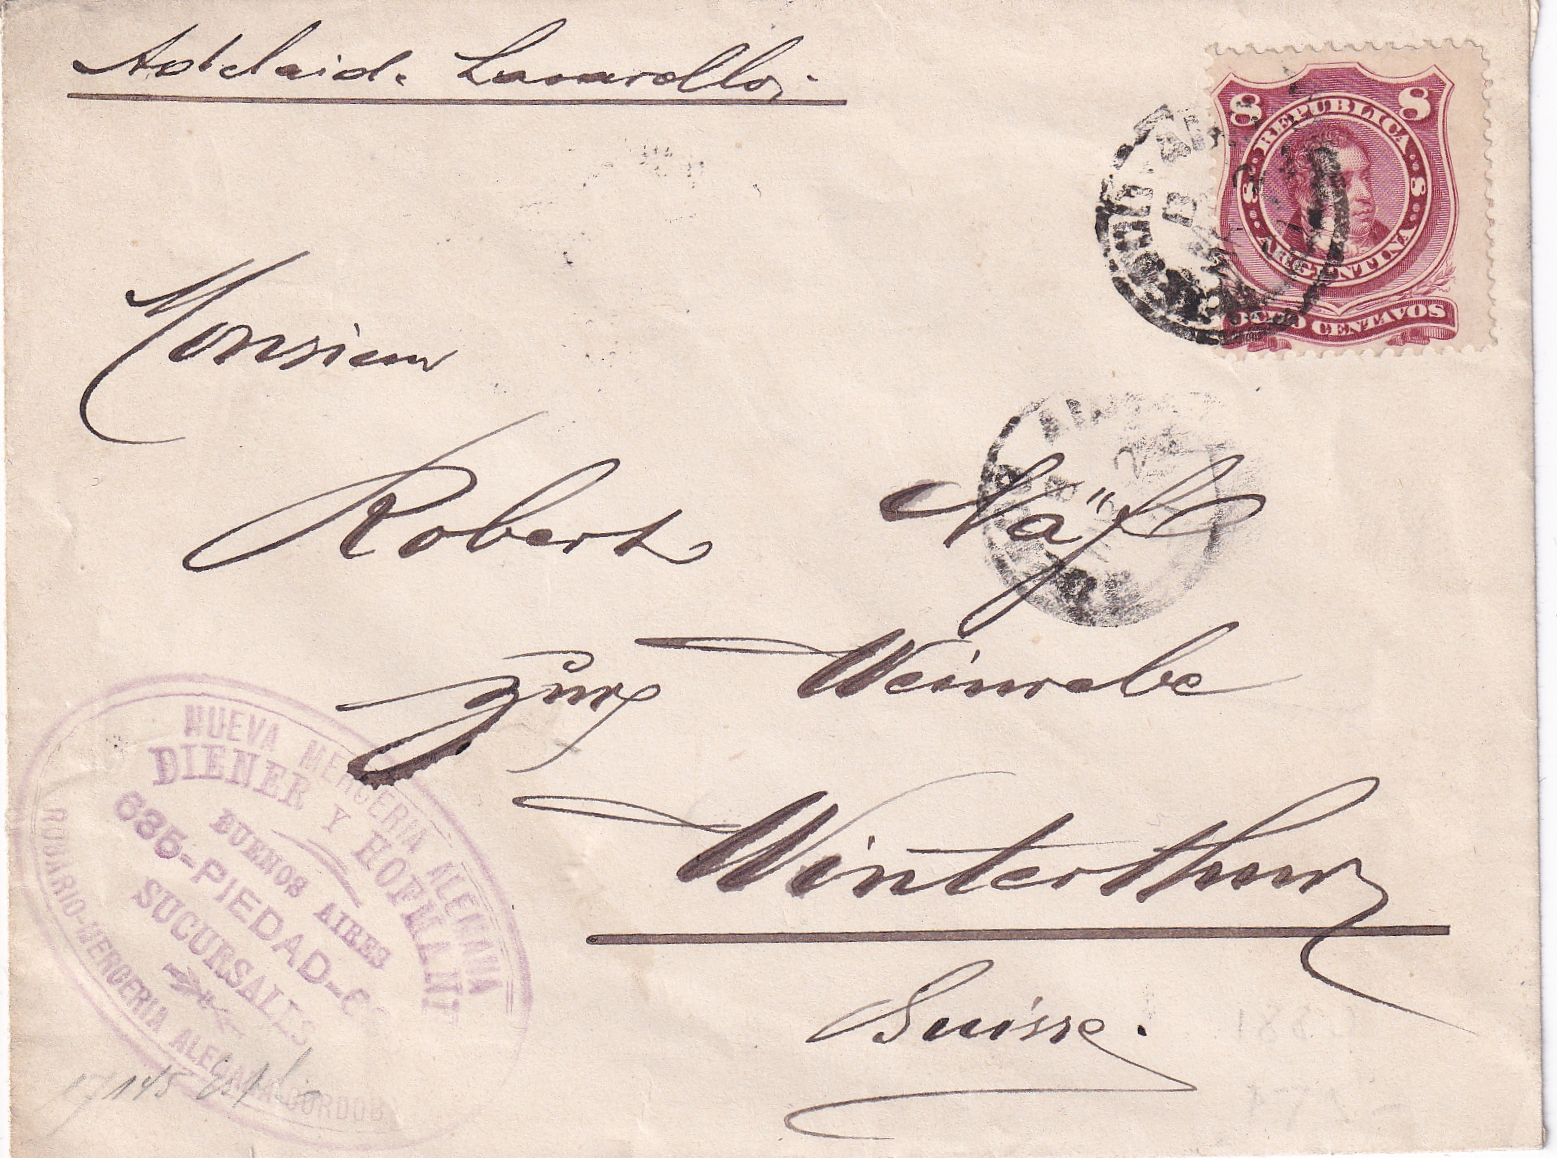 Adelaide Lavarello.
8 8
REPUBLICA
8 8
ARGENTINA
OCHO CENTAVOS
Monsieur
Robert Näf
zur Weinrebe
Winterthur
Suisse.
NUEVA MERCERIA ALEMANA
DIENER Y HOFMANN
BUENOS AIRES
635-PIEDAD-6
SUCURSALES
ROSARIO-MERCERIA ALEMANA-CORDOBA